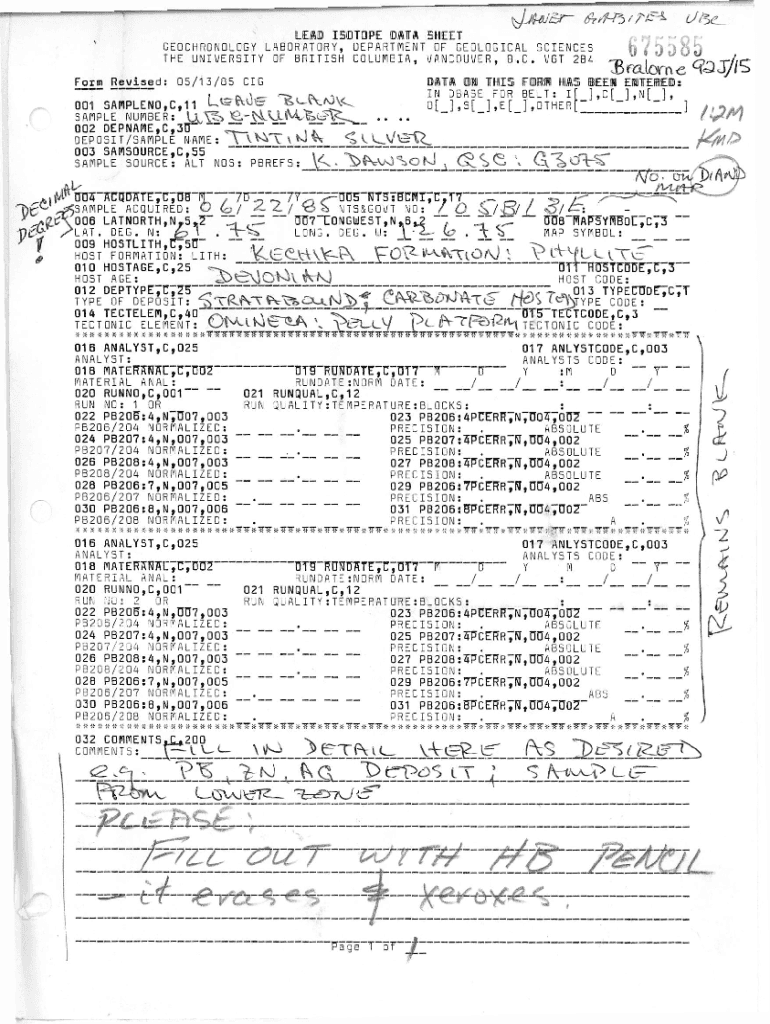 JANET GABITES UBC
LEAD ISOTOPE DATA SHEET
GEOCHRONOLOGY LABORATORY, DEPARTMENT OF GEOLOGICAL SCIENCES
THE UNIVERSITY OF BRITISH COLUMBIA, VANCOUVER, B.C. V6T 2B4
675585
Bralorne 92J/15
Form Revised: 05/13/85 CIG
DATA ON THIS FORM HAS BEEN ENTERED:
IN DBASE FOR BELT: I[_],C[_],N[_],
O[_],S[_],E[_],OTHER[ ]
1:2M
KMD
001 SAMPLENO,C,11 LEAVE BLANK
SAMPLE NUMBER: UBC-NUMBER
002 DEPNAME,C,30
DEPOSIT/SAMPLE NAME: TINTINA SILVER
003 SAMSOURCE,C,55
SAMPLE SOURCE: ALT NOS: PBREFS: K. DAWSON, GSC: G3075
NO. ON DIAND MAP
DECIMAL DEGREES !
004 ACQDATE,C,08 005 NTS:BCMI,C,17
SAMPLE ACQUIRED: 06/22/85 NTS&GOVT NO: 105B/3E:
006 LATNORTH,N,5,2 007 LONGWEST,N,6,2 008 MAPSYMBOL,C,3
LAT. DEG. N: 61.75 LONG. DEG. W: 126.75 MAP SYMBOL:
009 HOSTLITH,C,50
HOST FORMATION: LITH: KECHIKA FORMATION: PHYLLITE
010 HOSTAGE,C,25 011 HOSTCODE,C,3
HOST AGE: DEVONIAN HOST CODE:
012 DEPTYPE,C,25 013 TYPECODE,C,1
TYPE OF DEPOSIT: STRATABOUND; CARBONATE HOSTED TYPE CODE:
014 TECTELEM,C,40 015 TECTCODE,C,3
TECTONIC ELEMENT: OMINECA: PELLY PLATFORM TECTONIC CODE:
016 ANALYST,C,025 017 ANLYSTCODE,C,003
ANALYST: ANALYSTS CODE:
018 MATERANAL,C,002 019 RUNDATE,C,017 M D Y :M D Y
MATERIAL ANAL: RUNDATE:NORM DATE: / / / /
020 RUNNO,C,001 021 RUNQUAL,C,12
RUN NO: 1 OR RUN QUALITY:TEMPERATURE:BLOCKS: : :
022 PB206:4,N,007,003 023 PB206:4PCERR,N,004,002
PB206/204 NORMALIZED: . PRECISION: . ABSOLUTE . %
024 PB207:4,N,007,003 025 PB207:4PCERR,N,004,002
PB207/204 NORMALIZED: . PRECISION: . ABSOLUTE . %
026 PB208:4,N,007,003 027 PB208:4PCERR,N,004,002
PB208/204 NORMALIZED: . PRECISION: . ABSOLUTE . %
028 PB206:7,N,007,005 029 PB206:7PCERR,N,004,002
PB206/207 NORMALIZED: . PRECISION: . ABS . %
030 PB206:8,N,007,006 031 PB206:8PCERR,N,004,002
PB206/208 NORMALIZED: . PRECISION: . A . %
REMAINS BLANK
016 ANALYST,C,025 017 ANLYSTCODE,C,003
ANALYST: ANALYSTS CODE:
018 MATERANAL,C,002 019 RUNDATE,C,017 M D Y M D Y
MATERIAL ANAL: RUNDATE:NORM DATE: / / / /
020 RUNNO,C,001 021 RUNQUAL,C,12
RUN NO: 2 OR RUN QUALITY:TEMPERATURE:BLOCKS: : :
022 PB206:4,N,007,003 023 PB206:4PCERR,N,004,002
PB206/204 NORMALIZED: . PRECISION: . ABSOLUTE . %
024 PB207:4,N,007,003 025 PB207:4PCERR,N,004,002
PB207/204 NORMALIZED: . PRECISION: . ABSOLUTE . %
026 PB208:4,N,007,003 027 PB208:4PCERR,N,004,002
PB208/204 NORMALIZED: . PRECISION: . ABSOLUTE . %
028 PB206:7,N,007,005 029 PB206:7PCERR,N,004,002
PB206/207 NORMALIZED: . PRECISION: . ABS . %
030 PB206:8,N,007,006 031 PB206:8PCERR,N,004,002
PB206/208 NORMALIZED: . PRECISION: . A . %
032 COMMENTS,C,200
COMMENTS: FILL IN DETAIL HERE AS DESIRED
e.g. PB, ZN, AG DEPOSIT; SAMPLE
FROM LOWER ZONE
PLEASE:
FILL OUT WITH HB PENCIL
- it erases & xeroxes.
Page 1 of 1